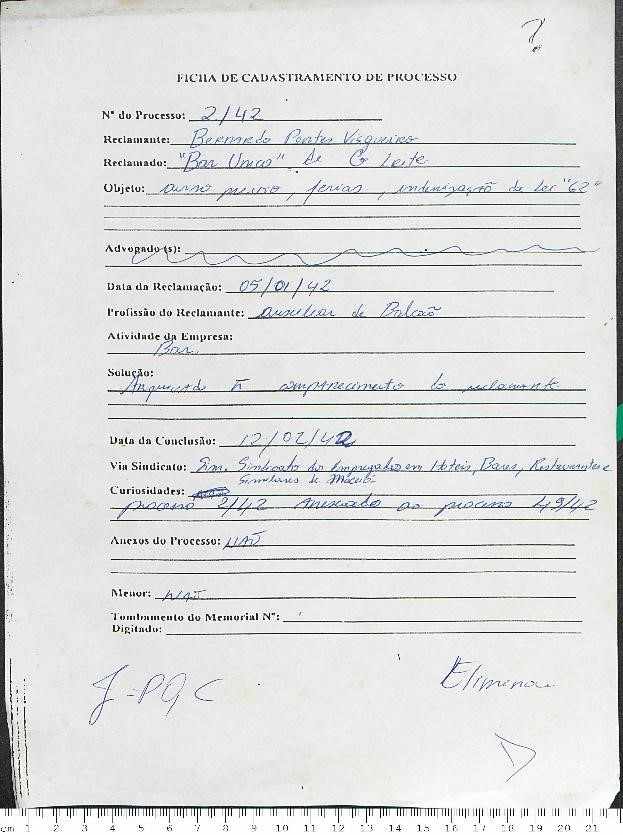 ?
FICHA DE CADASTRAMENTO DE PROCESSO
Nº do Processo: 2/42
Reclamante: Bernardo Pontes Visgueiro
Reclamado: "Bar Unico" de G Leite
Objeto: aviso previo, ferias, indenização da Lei "62"
Advogado (s):
Data da Reclamação: 05/01/42
Profissão do Reclamante: auxiliar de Balcão
Atividade da Empresa:
Bar
Solução:
Arquivado ñ comparecimento do reclamante
Data da Conclusão: 12/02/42
Via Sindicato: Sim. Sindicato dos Empregados em Hoteis, Bares, Restaurantes e
Similares de Maceió
Curiosidades:
processo 2/42 Anexado ao processo 49/42
Anexos do Processo: NÃO
Menor: NÃO
Tombamento do Memorial Nº:
Digitado:
J-PGC
D
cm 1 2 3 4 5 6 7 8 9 10 11 12 13 14 15 16 17 18 19 20 21